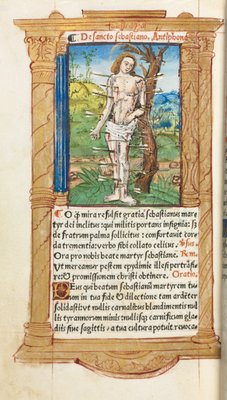 De sancto sebastiano. Antiphona
O q̄ mira refulsit gratia sebastianus mar
tyr dei inclitus: qui militis portans insignia: s̄
de fratrum palma sollicitus: confortauit cor
da trementia: verbo sibi collato celitus. Ꝟsus
Ora pro nobis beate martyr sebastiane. Rem.
Ut mereamur pestem epydimie illesi pertrāsi
re: & promissionem christi obtinere. Oratio.
Deus qui beatum sebastianū martyrem tuum
in tua fide & dilectione tam ardēter
solidasti: vt nullis carnalibus blandimentis nul
lis tyrannorum minis nullisq; carnificum gla
diis siue sagittis: a tua cultura potuit reuoca